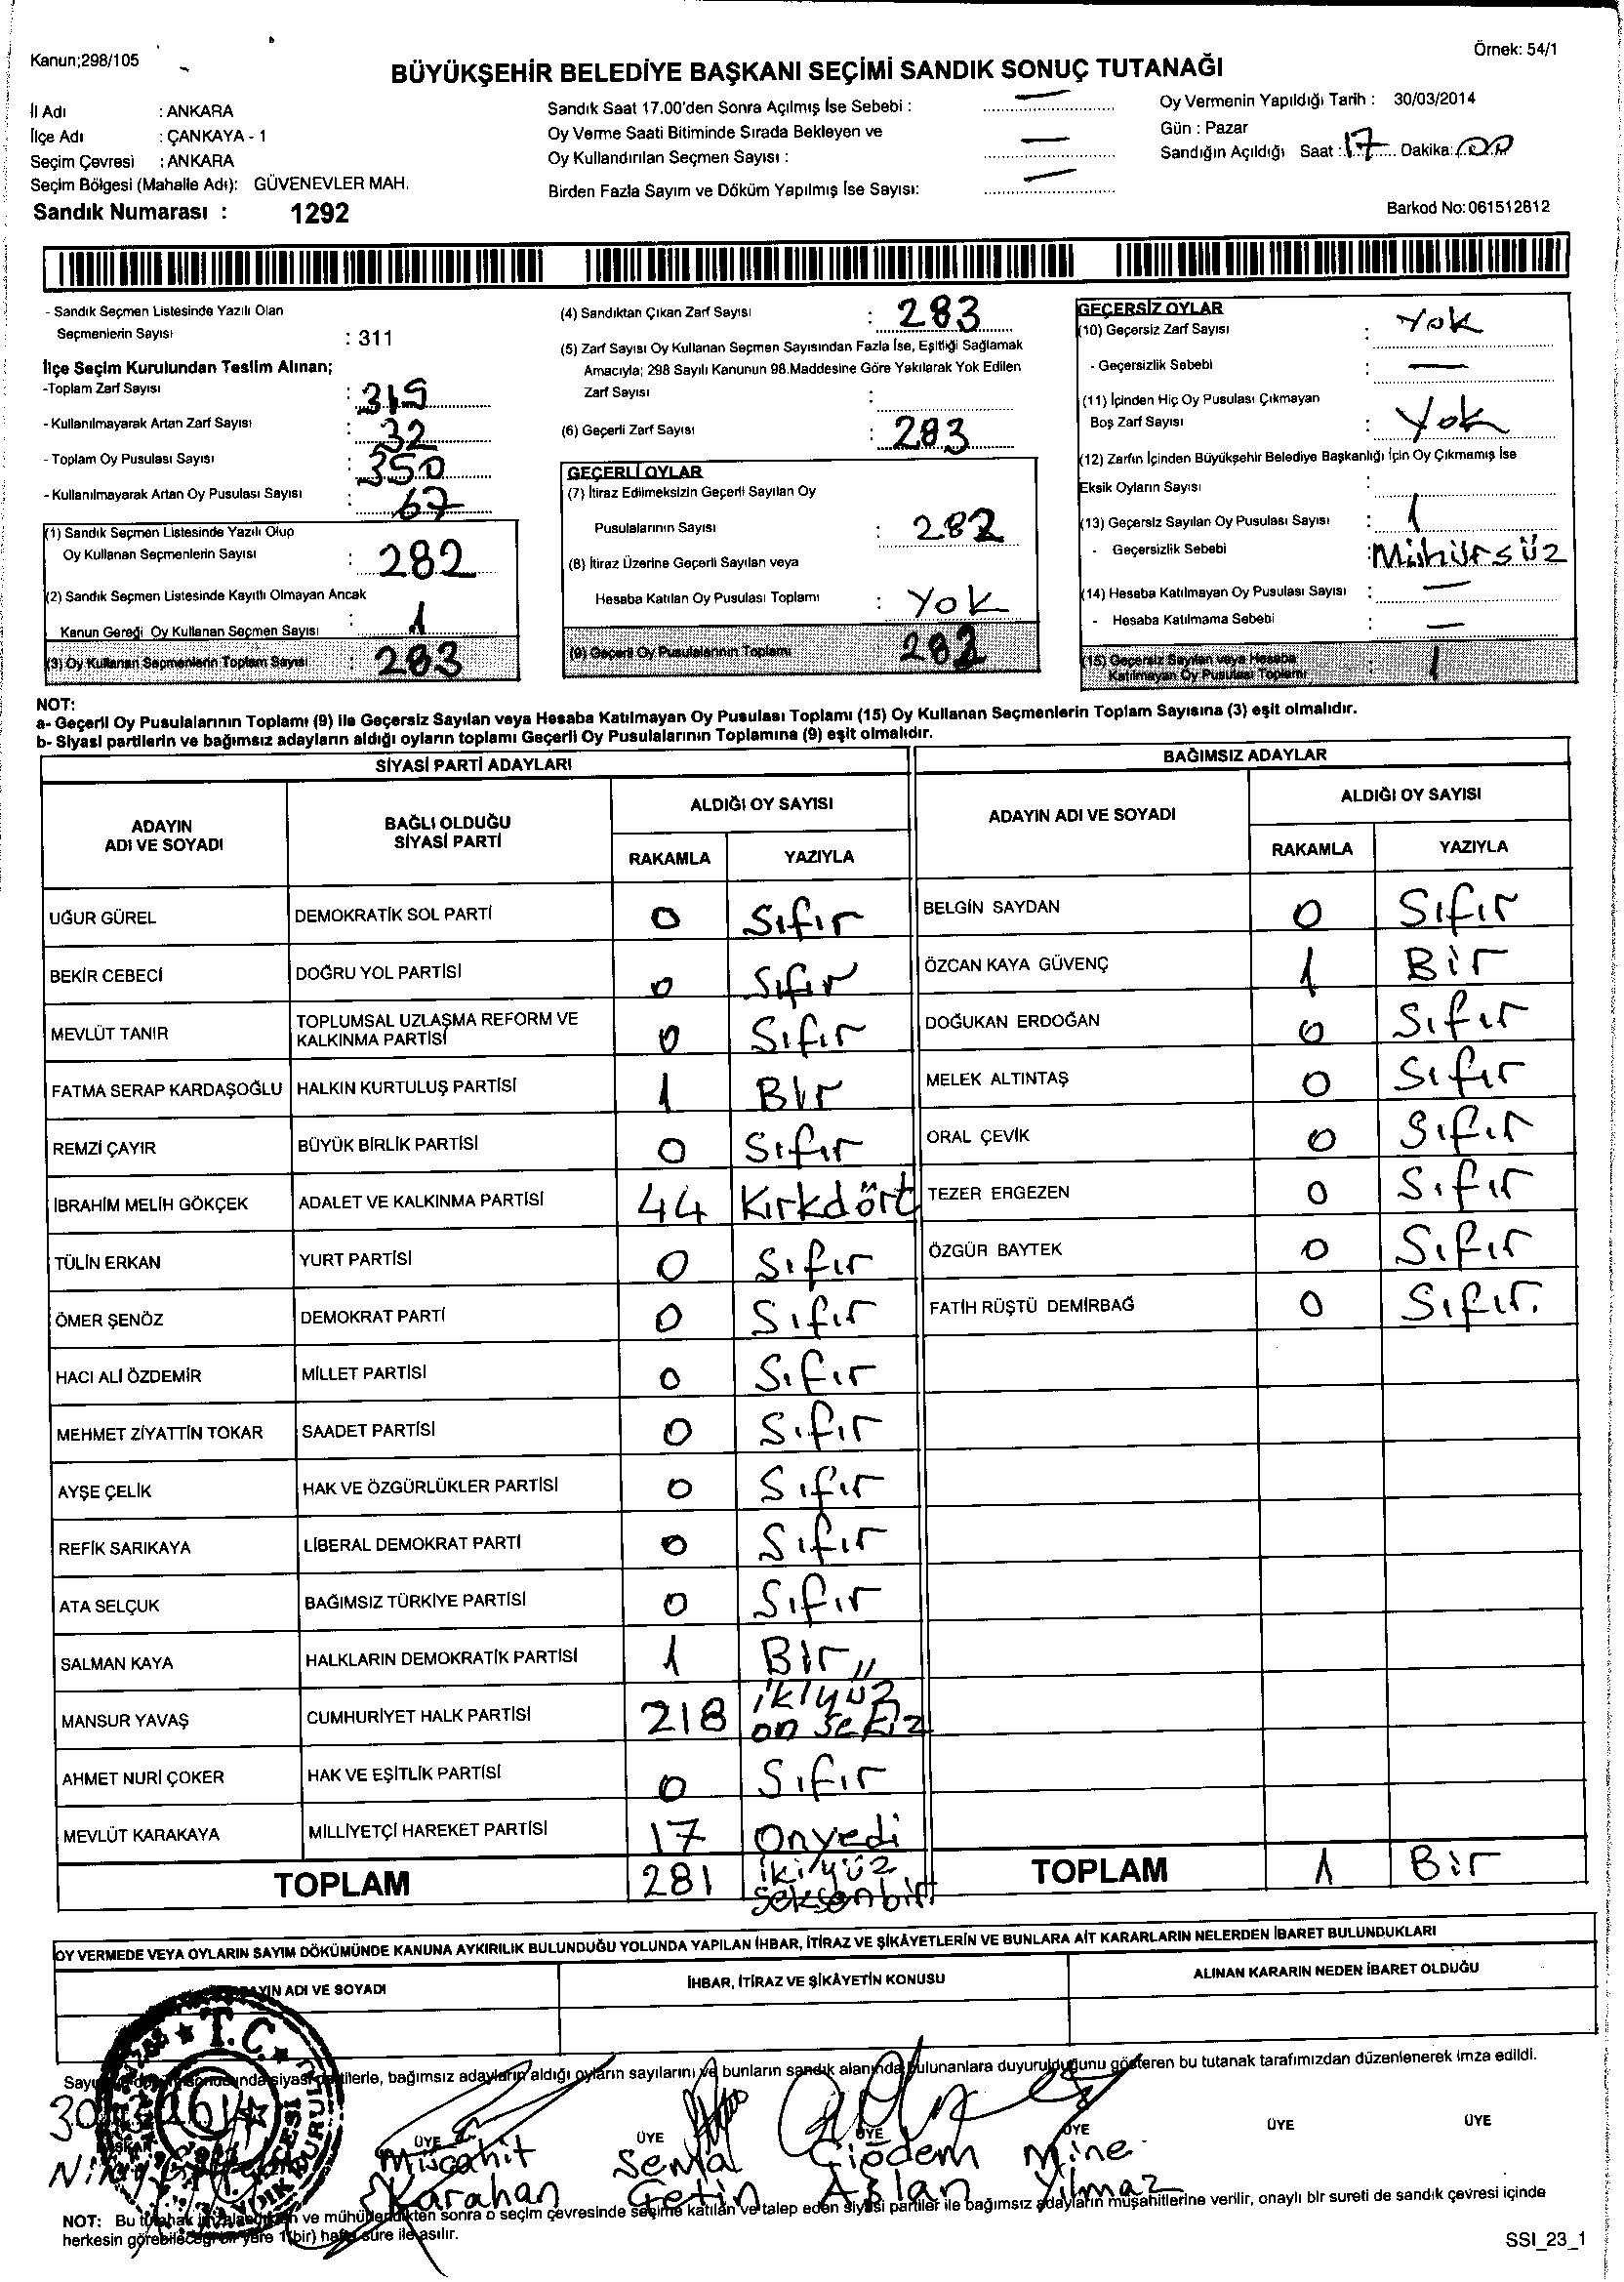 Kanun;298/105
Örnek: 54/1
BÜYÜKŞEHİR BELEDİYE BAŞKANI SEÇİMİ SANDIK SONUÇ TUTANAĞI
İl Adı : ANKARA
İlçe Adı : ÇANKAYA - 1
Seçim Çevresi : ANKARA
Seçim Bölgesi (Mahalle Adı): GÜVENEVLER MAH.
Sandık Numarası : 1292
Sandık Saat 17.00'den Sonra Açılmış İse Sebebi : —
Oy Verme Saati Bitiminde Sırada Bekleyen ve
Oy Kullandırılan Seçmen Sayısı : —
Birden Fazla Sayım ve Döküm Yapılmış İse Sayısı: —
Oy Vermenin Yapıldığı Tarih : 30/03/2014
Gün : Pazar
Sandığın Açıldığı Saat : 17 Dakika: 00
Barkod No:061512812
- Sandık Seçmen Listesinde Yazılı Olan
Seçmenlerin Sayısı : 311
İlçe Seçim Kurulundan Teslim Alınan;
-Toplam Zarf Sayısı : 315
- Kullanılmayarak Artan Zarf Sayısı : 32
- Toplam Oy Pusulası Sayısı : 350
- Kullanılmayarak Artan Oy Pusulası Sayısı : 67
(1) Sandık Seçmen Listesinde Yazılı Olup
Oy Kullanan Seçmenlerin Sayısı : 282
(2) Sandık Seçmen Listesinde Kayıtlı Olmayan Ancak
Kanun Gereği Oy Kullanan Seçmen Sayısı : 1
(3) Oy Kullanan Seçmenlerin Toplam Sayısı : 283
(4) Sandıktan Çıkan Zarf Sayısı : 283
(5) Zarf Sayısı Oy Kullanan Seçmen Sayısından Fazla İse, Eşitliği Sağlamak
Amacıyla; 298 Sayılı Kanunun 98.Maddesine Göre Yakılarak Yok Edilen
Zarf Sayısı :
(6) Geçerli Zarf Sayısı : 283
GEÇERLİ OYLAR
(7) İtiraz Edilmeksizin Geçerli Sayılan Oy
Pusulalarının Sayısı : 282
(8) İtiraz Üzerine Geçerli Sayılan veya
Hesaba Katılan Oy Pusulası Toplamı : YOK
(9) Geçerli Oy Pusulalarının Toplamı 282
GEÇERSİZ OYLAR
(10) Geçersiz Zarf Sayısı : Yok
- Geçersizlik Sebebi : —
(11) İçinden Hiç Oy Pusulası Çıkmayan
Boş Zarf Sayısı : Yok
(12) Zarfın İçinden Büyükşehir Belediye Başkanlığı İçin Oy Çıkmamış İse
Eksik Oyların Sayısı :
(13) Geçersiz Sayılan Oy Pusulası Sayısı : 1
- Geçersizlik Sebebi : Mühürsüz
(14) Hesaba Katılmayan Oy Pusulası Sayısı : —
- Hesaba Katılmama Sebebi : —
(15) Geçersiz Sayılan veya Hesaba
Katılmayan Oy Pusulası Toplamı : 1
NOT:
a- Geçerli Oy Pusulalarının Toplamı (9) ile Geçersiz Sayılan veya Hesaba Katılmayan Oy Pusulası Toplamı (15) Oy Kullanan Seçmenlerin Toplam Sayısına (3) eşit olmalıdır.
b- Siyasi partilerin ve bağımsız adayların aldığı oyların toplamı Geçerli Oy Pusulalarının Toplamına (9) eşit olmalıdır.
SİYASİ PARTİ ADAYLARI
ADAYIN
ADI VE SOYADI
BAĞLI OLDUĞU
SİYASİ PARTİ
ALDIĞI OY SAYISI
RAKAMLA YAZIYLA
UĞUR GÜREL DEMOKRATİK SOL PARTİ 0 Sıfır
BEKİR CEBECİ DOĞRU YOL PARTİSİ 0 Sıfır
MEVLÜT TANIR TOPLUMSAL UZLAŞMA REFORM VE
KALKINMA PARTİSİ 0 Sıfır
FATMA SERAP KARDAŞOĞLU HALKIN KURTULUŞ PARTİSİ 1 Bir
REMZİ ÇAYIR BÜYÜK BİRLİK PARTİSİ 0 Sıfır
İBRAHİM MELİH GÖKÇEK ADALET VE KALKINMA PARTİSİ 44 Kırkdört
TÜLİN ERKAN YURT PARTİSİ 0 Sıfır
ÖMER ŞENÖZ DEMOKRAT PARTİ 0 Sıfır
HACI ALİ ÖZDEMİR MİLLET PARTİSİ 0 Sıfır
MEHMET ZİYATTİN TOKAR SAADET PARTİSİ 0 Sıfır
AYŞE ÇELİK HAK VE ÖZGÜRLÜKLER PARTİSİ 0 Sıfır
REFİK SARIKAYA LİBERAL DEMOKRAT PARTİ 0 Sıfır
ATA SELÇUK BAĞIMSIZ TÜRKİYE PARTİSİ 0 Sıfır
SALMAN KAYA HALKLARIN DEMOKRATİK PARTİSİ 1 Bir
MANSUR YAVAŞ CUMHURİYET HALK PARTİSİ 218 ikiyüz
on sekiz
AHMET NURİ ÇOKER HAK VE EŞİTLİK PARTİSİ 0 Sıfır
MEVLÜT KARAKAYA MİLLİYETÇİ HAREKET PARTİSİ 17 Onyedi
TOPLAM 281 ikiyüz
seksenbir
BAĞIMSIZ ADAYLAR
ADAYIN ADI VE SOYADI
ALDIĞI OY SAYISI
RAKAMLA YAZIYLA
BELGİN SAYDAN 0 Sıfır
ÖZCAN KAYA GÜVENÇ 1 Bir
DOĞUKAN ERDOĞAN 0 Sıfır
MELEK ALTINTAŞ 0 Sıfır
ORAL ÇEVİK 0 Sıfır
TEZER ERGEZEN 0 Sıfır
ÖZGÜR BAYTEK 0 Sıfır
FATİH RÜŞTÜ DEMİRBAĞ 0 Sıfır.
TOPLAM 1 Bir
OY VERMEDE VEYA OYLARIN SAYIM DÖKÜMÜNDE KANUNA AYKIRILIK BULUNDUĞU YOLUNDA YAPILAN İHBAR, İTİRAZ VE ŞİKÂYETLERİN VE BUNLARA AİT KARARLARIN NELERDEN İBARET BULUNDUKLARI
ADI VE SOYADI
İHBAR, İTİRAZ VE ŞİKÂYETİN KONUSU
ALINAN KARARIN NEDEN İBARET OLDUĞU
T.C.
bağımsız adayların aldığı oyların sayılarını ve bunların sandık alanında bulunanlara duyurulduğunu gösteren bu tutanak tarafımızdan düzenlenerek imza edildi.
ÜYE ÜYE ÜYE ÜYE ÜYE ÜYE
Mücahit Sema Çiğdem Mine
Karahan Çetin Aslan Yılmaz
NOT: Bu ve mühürlendikten sonra o seçim çevresinde seçime katılan ve talep eden siyasi partiler ile bağımsız adayların müşahitlerine verilir, onaylı bir sureti de sandık çevresi içinde
herkesin görebileceği bir yere 1(bir) hafta süre ile asılır.
SSI_23_1